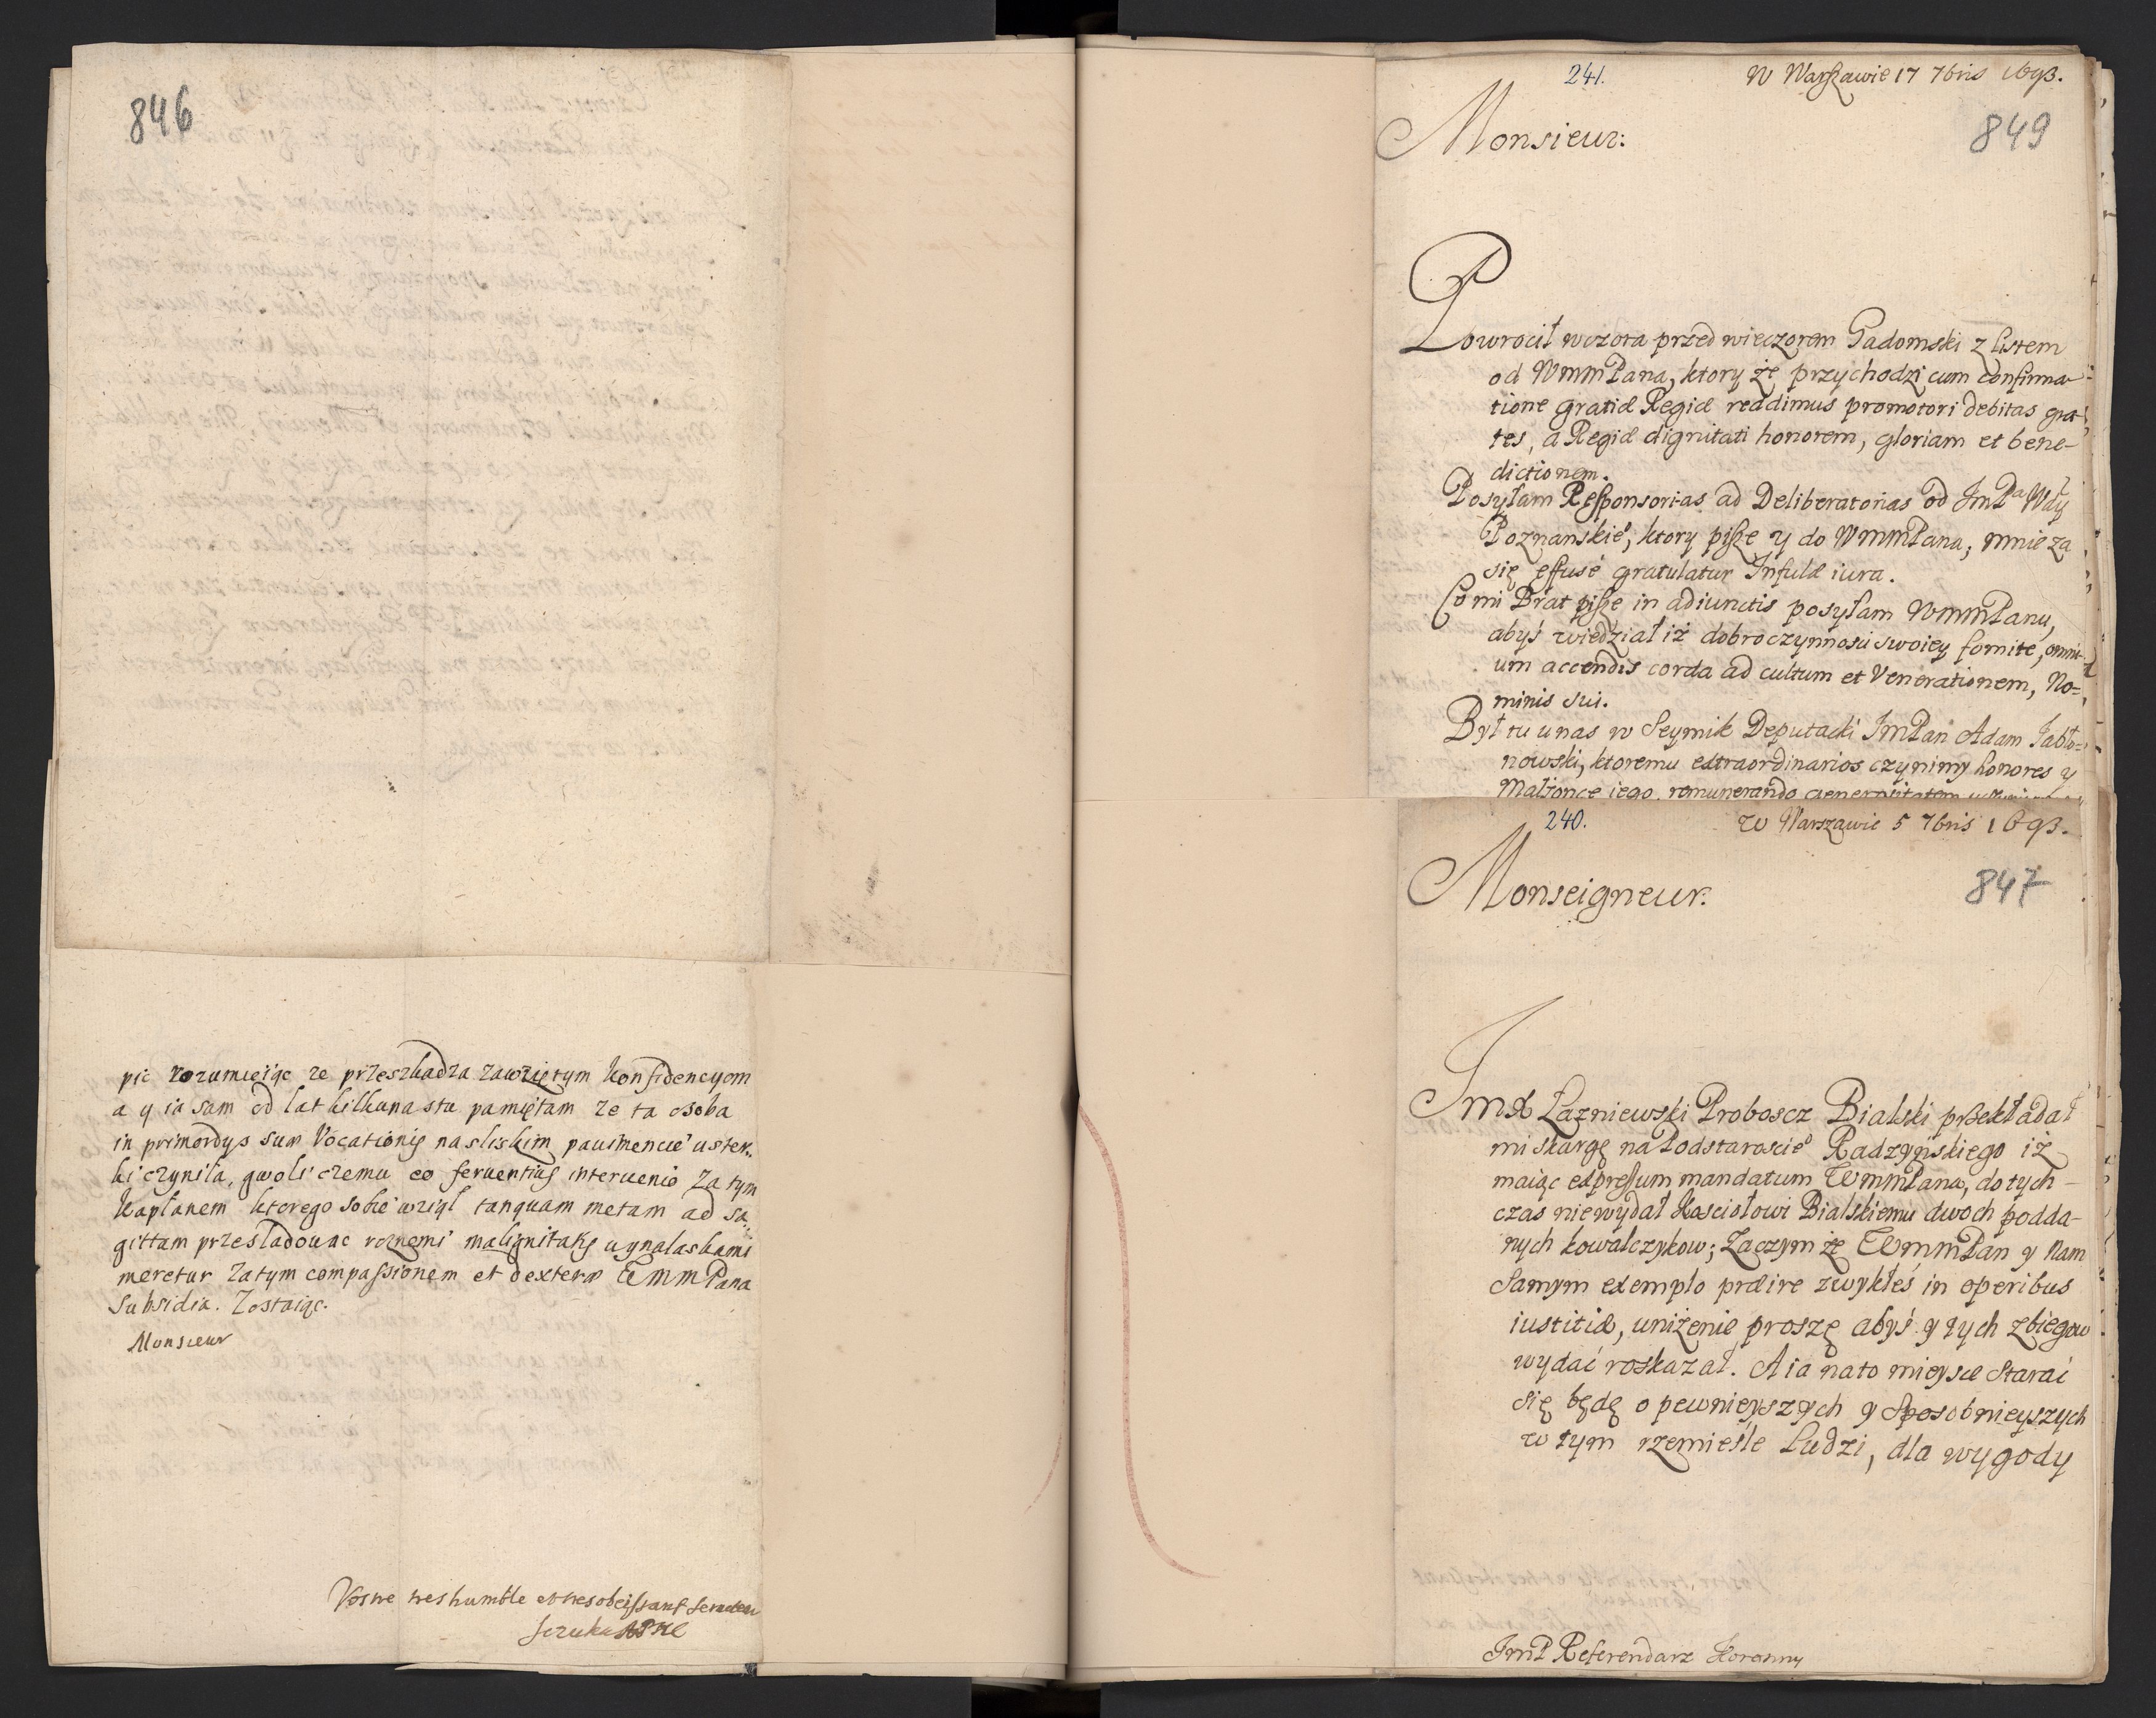 846
pic rozumieiąc ze przeszkadza zawziętym konfidencyom
a y ia sam od lat kilkunastu pamiętam ze ta osoba
in primordys suæ Vocationis na sliskim pauimencie uster-
ki czyniła, gwoli czemu eo feruentius interuenio za tym
kapłanem ktorego sobie wziął tanquam metam ad sa-
gittam przesladouac roznemi malignitatis wynalaskami
meretur zatym compassionem et dexteræ WMMPana
Subsidia. Zostaiąc.
Monsieur
Vostre tres humble et tres obeissant serviteur
Szczuka
241.
W Warszawie 17 7bris 1693.
849
Monsieur:
Powrocił wczora przed wieczorem Gadomski z listem
od WMMPana, ktory że przychodzi cum confirma-
tione gratiæ Regiæ reddimus promotori debitas gra-
tes, a Regiæ dignitati honorem, gloriam et bene-
dictionem.
Posyłam Responsorias ad Deliberatorias od JmPa Wdy
Poznanskie°, ktory pisze y do WMMPana, mnie za
się effusé gratulatur Infulæ iura.
Co mi Brat pisze in adiunctis posyłam WMMPanu,
abyś wiedział iż dobroczynnosci swoiey fomite, omni-
um accendis corda ad cultum et Venerationem, No=
minis sui.
Był tu u nas w Seymik Deputacki JmPan Adam Jabło=
nowski, ktoremu extraordinarios czynimy honores y
Małżonce iego, remunerando generositatem
240.
w Warszawie 5 7bris 1693.
847
Monseigneur:
JmX Łazniewski Proboscz Bialski przekładał
mi skargę na Podstaroscie° Radzyńskiego iż
maiąc expressum mandatum WMMPana, do tych-
czas nie wydał Kosciołowi Bialskiemu dwoch podda-
nych kowalczykow; Zaczym że WMMPan y nam
samym exemplo præire zwykłeś in operibus
iustitiæ, uniżenie proszę abyś y tych zbiegow
wydać roskazał. A ia na to mieysce starać
się będę o pewnieyszych y sposobnieyszych
w tym rzemieśle Ludzi, dla wygody
JmP Referendarz Koronny